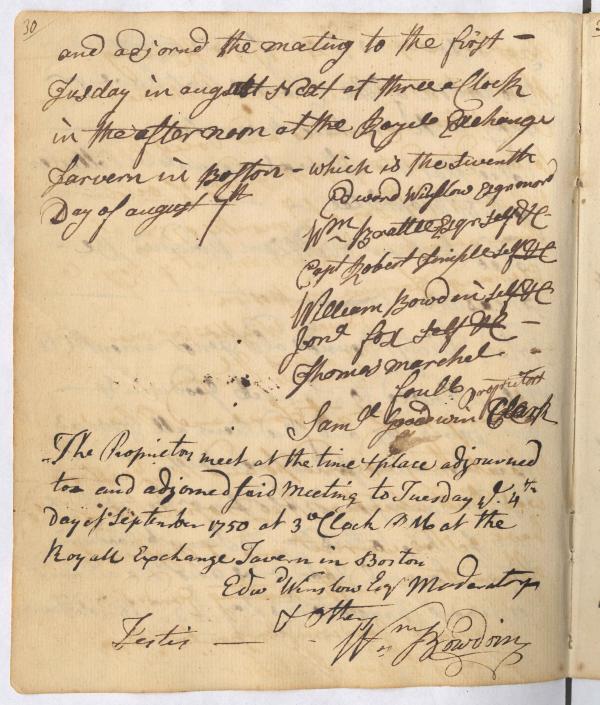 30
and adjornd the meating to the first -
Tusday in august Next at three a Clock
in the afternoon at the Royle Exchange
Tarvern in Boston - which is the Seventh
Day of august 7th
Edword Winslow Esqr mord
Wm Brattle Esqr self &C
Capt Robert Temple self &C
William Bowdin self &C
Jonn fox self &C -
Thomas marchel
Proprietors
Saml Goodwin Clark
The Proprietors meet at the time & place adjourned
to and adjorned said Meeting to Tuesday ye. 4th
Day of September 1750 at 3 o Clock P M at the
Royall Exchange Tavern in Boston
Edwd Winslow Esqr Moderator
& Other
Testis - Wm Bowdoin